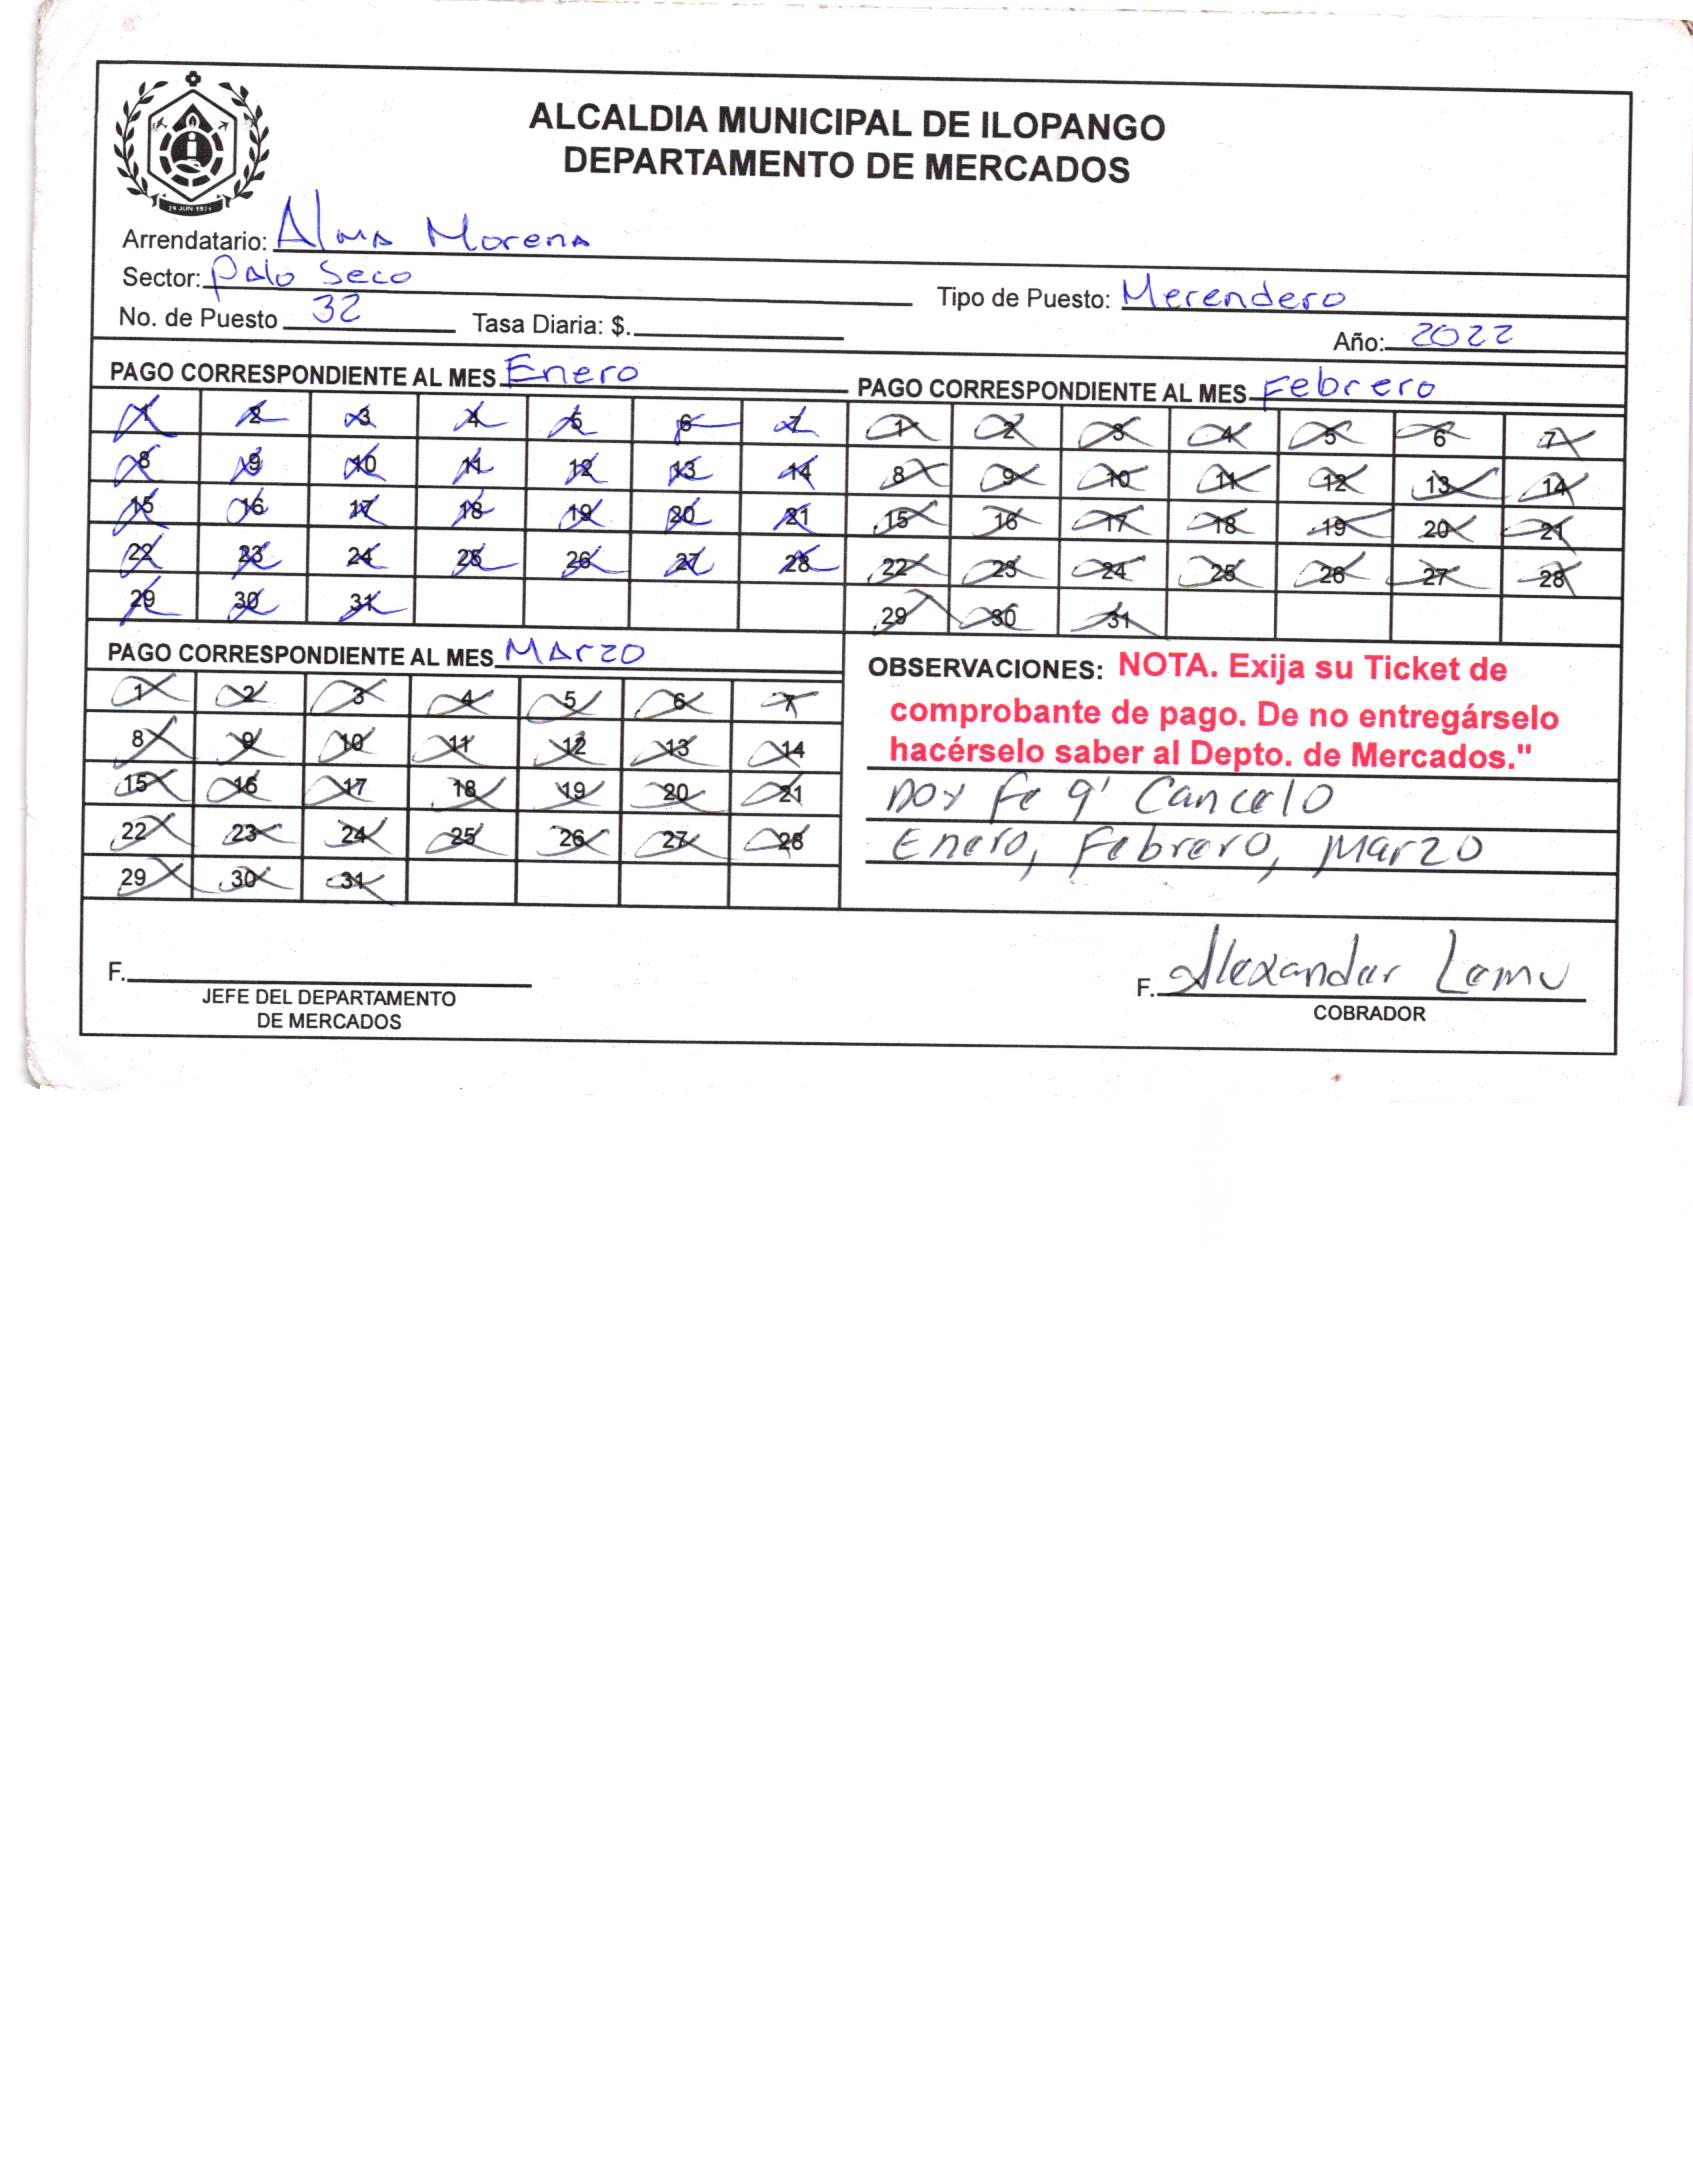 ALCALDIA MUNICIPAL DE ILOPANGO
DEPARTAMENTO DE MERCADOS
29 JUN 1971
Arrendatario: Alma Morena
Sector: Palo Seco
Tipo de Puesto: Merendero
No. de Puesto 32 Tasa Diaria: $.
Año: 2022
PAGO CORRESPONDIENTE AL MES Enero
1 2 3 4 5 6 7
8 9 10 11 12 13 14
15 16 17 18 19 20 21
22 23 24 25 26 27 28
29 30 31
PAGO CORRESPONDIENTE AL MES Febrero
1 2 3 4 5 6 7
8 9 10 11 12 13 14
15 16 17 18 19 20 21
22 23 24 25 26 27 28
29 30 31
PAGO CORRESPONDIENTE AL MES Marzo
1 2 3 4 5 6 7
8 9 10 11 12 13 14
15 16 17 18 19 20 21
22 23 24 25 26 27 28
29 30 31
OBSERVACIONES: NOTA. Exija su Ticket de
comprobante de pago. De no entregárselo
hacérselo saber al Depto. de Mercados."
Doy fe q' Cancelo
Enero, Febrero, Marzo
F.
JEFE DEL DEPARTAMENTO
DE MERCADOS
F. Alexander
COBRADOR